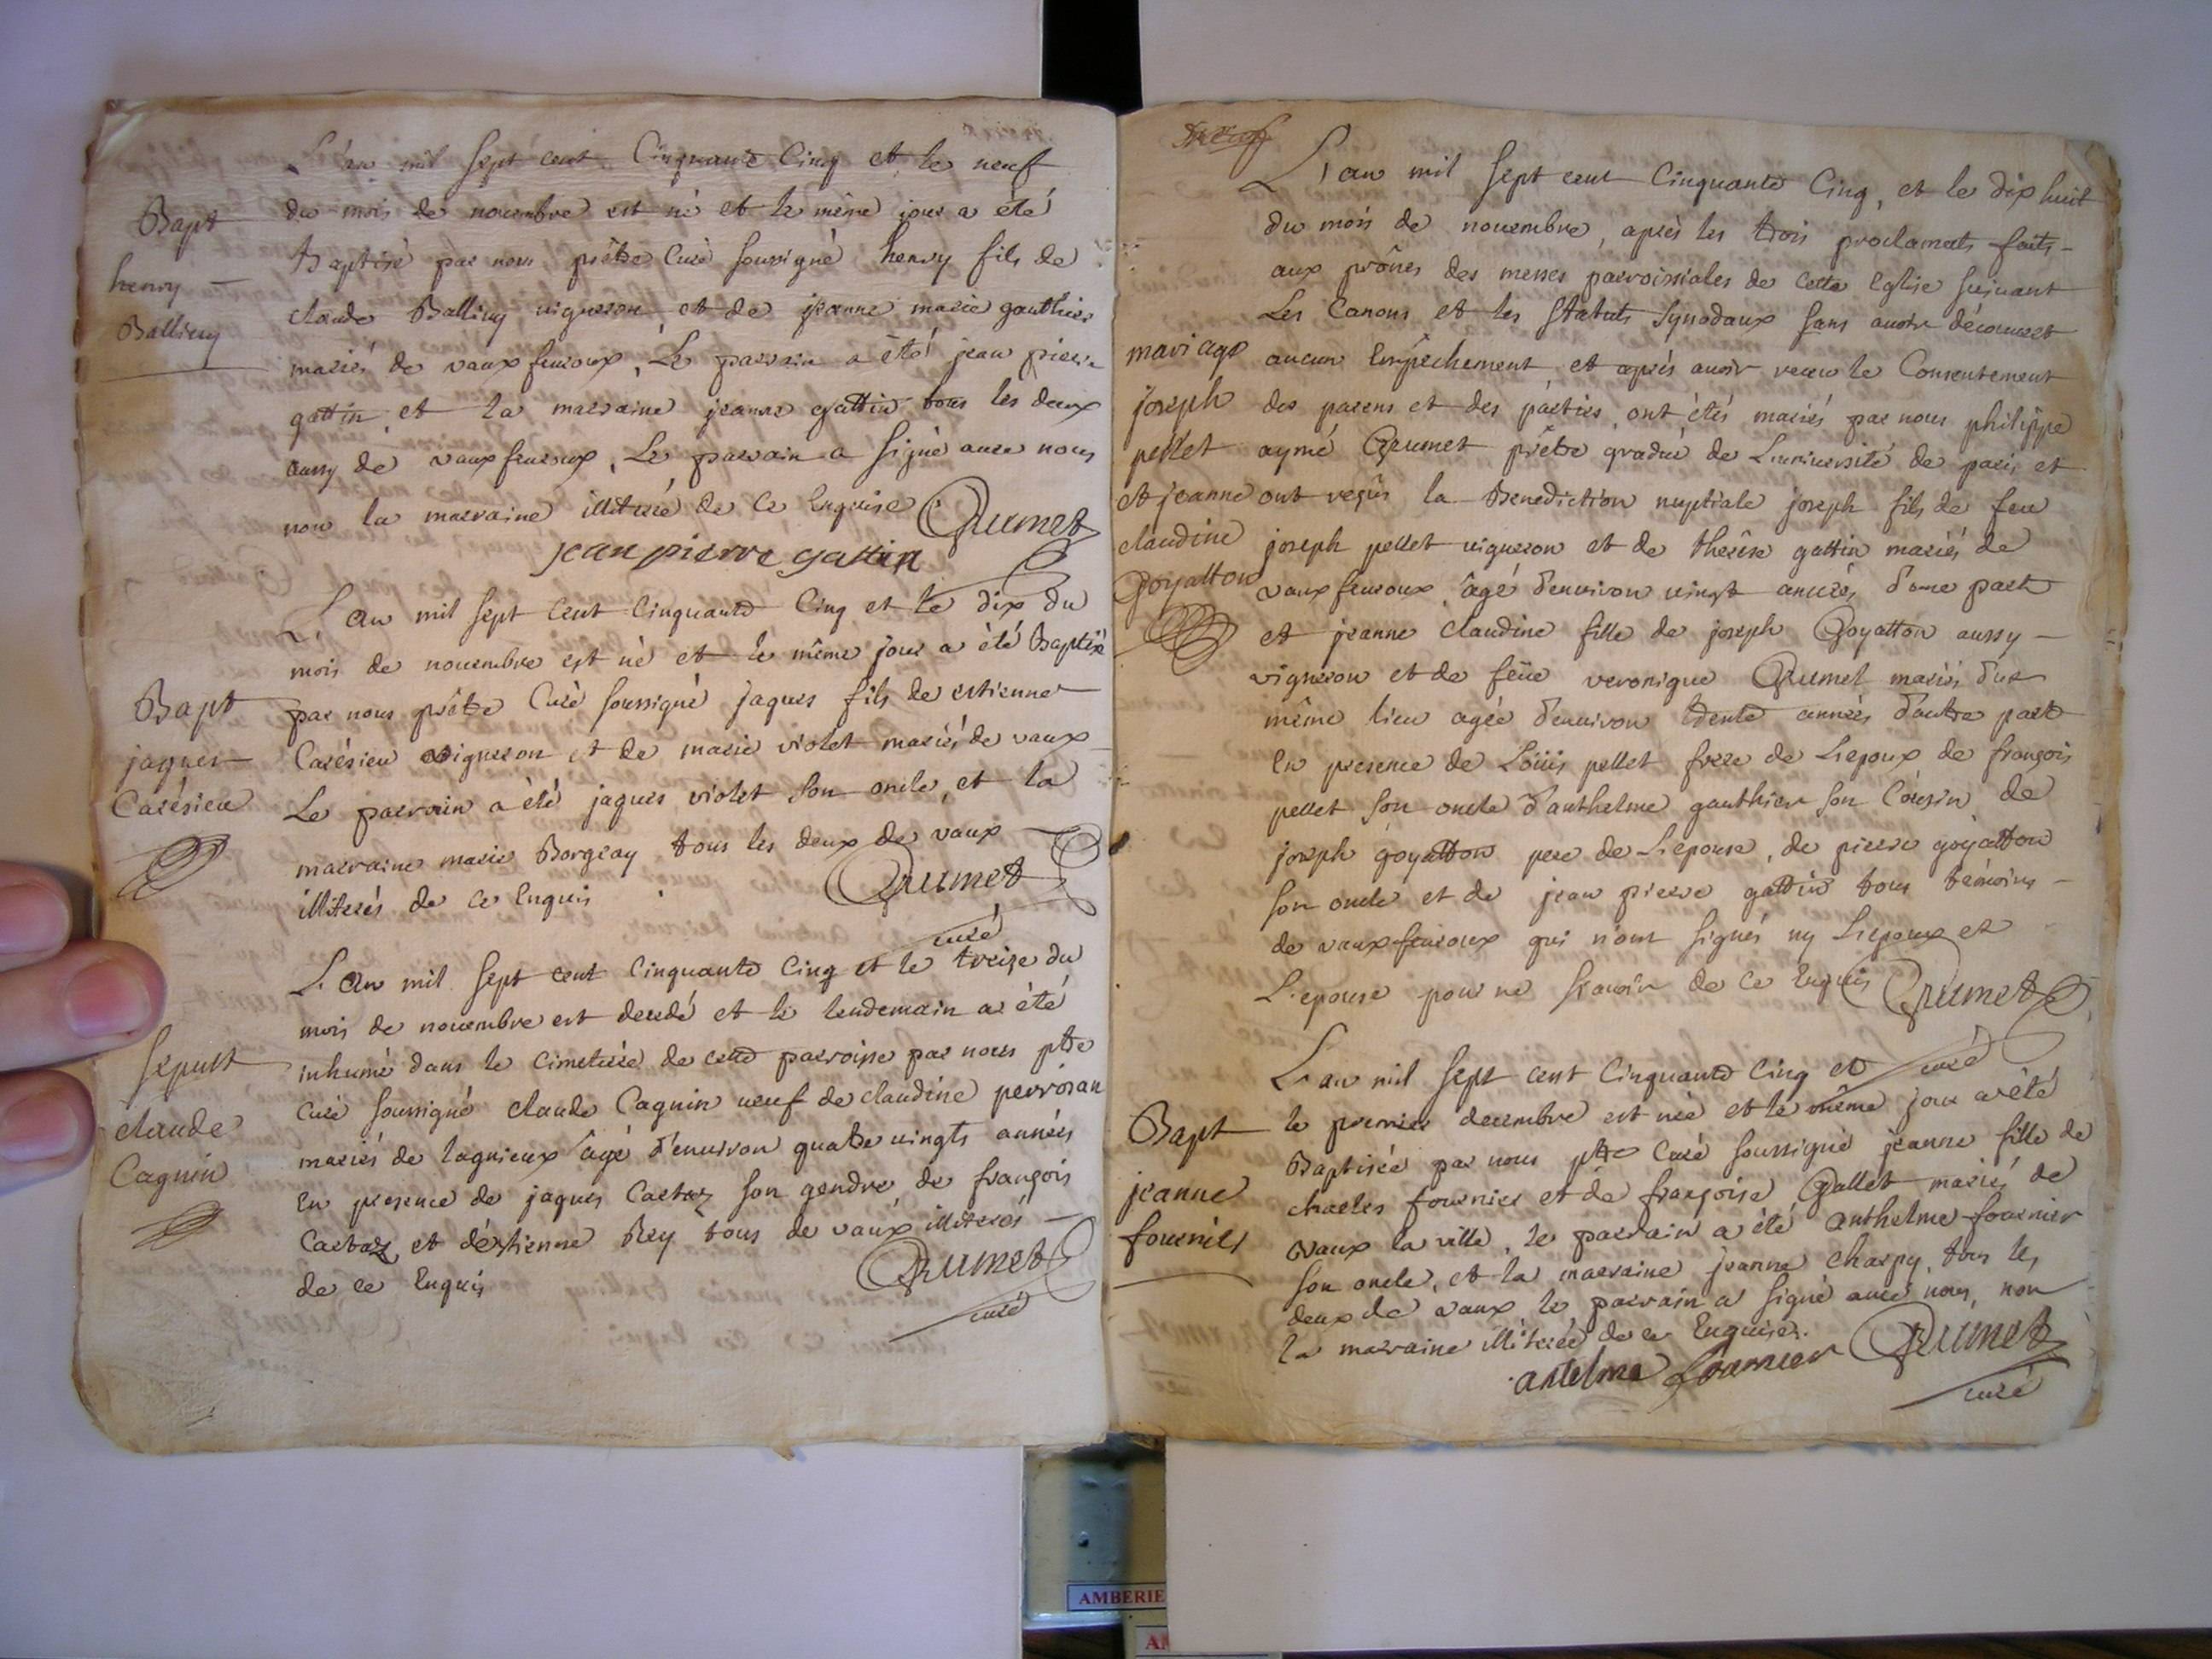 L'an mil sept cent Cinquante Cinq et le neuf
du mois de novembre est né et le même jour a été
Baptisé par nous prêtre Curé soussigné henry fils de
claude Balliuy vigneron et de jeanne marie gauthier
mariés de vaux fevroux, Le parrain a été jean pierre
gattin, et la marraine jeanne gattin tous les deux
aussy de vaux fevroux, Le parrain a signé avec nous
non la marraine illiterée de ce Enquise Grumet
jean pierre gattin
Bapt
henry
Balliuy
L'an mil sept cent Cinquante Cinq et le dix du
mois de novembre est né et le même jour a été Baptisé
par nous prêtre Curé soussigné jaques fils de estienne
Carésieu vigneron et de marie violet mariés de vaux
Le parrain a été jaques violet son oncle, et la
marraine marie Borgeay tous les deux de vaux
illiterés de ce Enquis Grumet
curé
Bapt
jaques
Carésieu
L'an mil sept cent Cinquante Cinq et le treize du
mois de novembre est decedé et le lendemain a été
inhumé dans le Cimetiere de cette parroisse par nous ptre
Curé soussigné claude Cagnin veuf de claudine perrosan
mariés de lagnieux âgé d'environ quatre vingts années
En presence de jaques Cartaz son gendre de françois
Cartaz et d'estienne Rey tous de vaux illiterés
de ce Enquis Grumet
curé
sepult
claude
Cagnin
L'an mil sept cent Cinquante Cinq, et le dix huit
du mois de novembre, après les trois proclamats faits
aux prônes des messes parroissiales de cette Eglise suivant
Les Canons et les statuts synodaux sans avoir découvert
aucun Empêchement, et après avoir receu le Consentement
des parens et des parties, ont étés mariés par nous philippe
aymé Grumet prêtre gradué de L'université de paris et
ont reçûs la Benediction nuptiale joseph fils de feu
joseph pellet vigneron et de therèse gattin mariés de
vaux fevroux, âgé d'environ vingt années, d'une part
et jeanne claudine fille de joseph Goyatton aussy
vigneron et de feüe veronique Grumet mariés du
même lieu agée d'environ trente années d'autre part
En presence de Loüis pellet frere de L'epoux de françois
pellet son oncle d'anthelme gauthier son Cousin de
joseph goyatton pere de L'epouse, de pierre goyatton
son oncle et de jean pierre gattin tous témoins
de vaux fevroux qui n'ont signés ny L'epoux et
L'epouse pour ne sçavoir de ce Enquis Grumet
curé
mariage
joseph
pellet
et jeanne
claudine
Goyatton
L'an mil sept cent Cinquante Cinq et
le premier decembre est née et le même jour a été
Baptisée par nous ptre Curé soussigné jeanne fille de
charles fournier et de françoise Gallet mariés de
vaux la ville, le parrain a été anthelme fournier
son oncle, et la marraine jeanne charpy, tous les
deux de vaux le parrain a signé avec nous, non
la marraine illiterée de ce Enquise. Grumet
antelme fournier
curé
Bapt
jeanne
fournier
AMBERIE